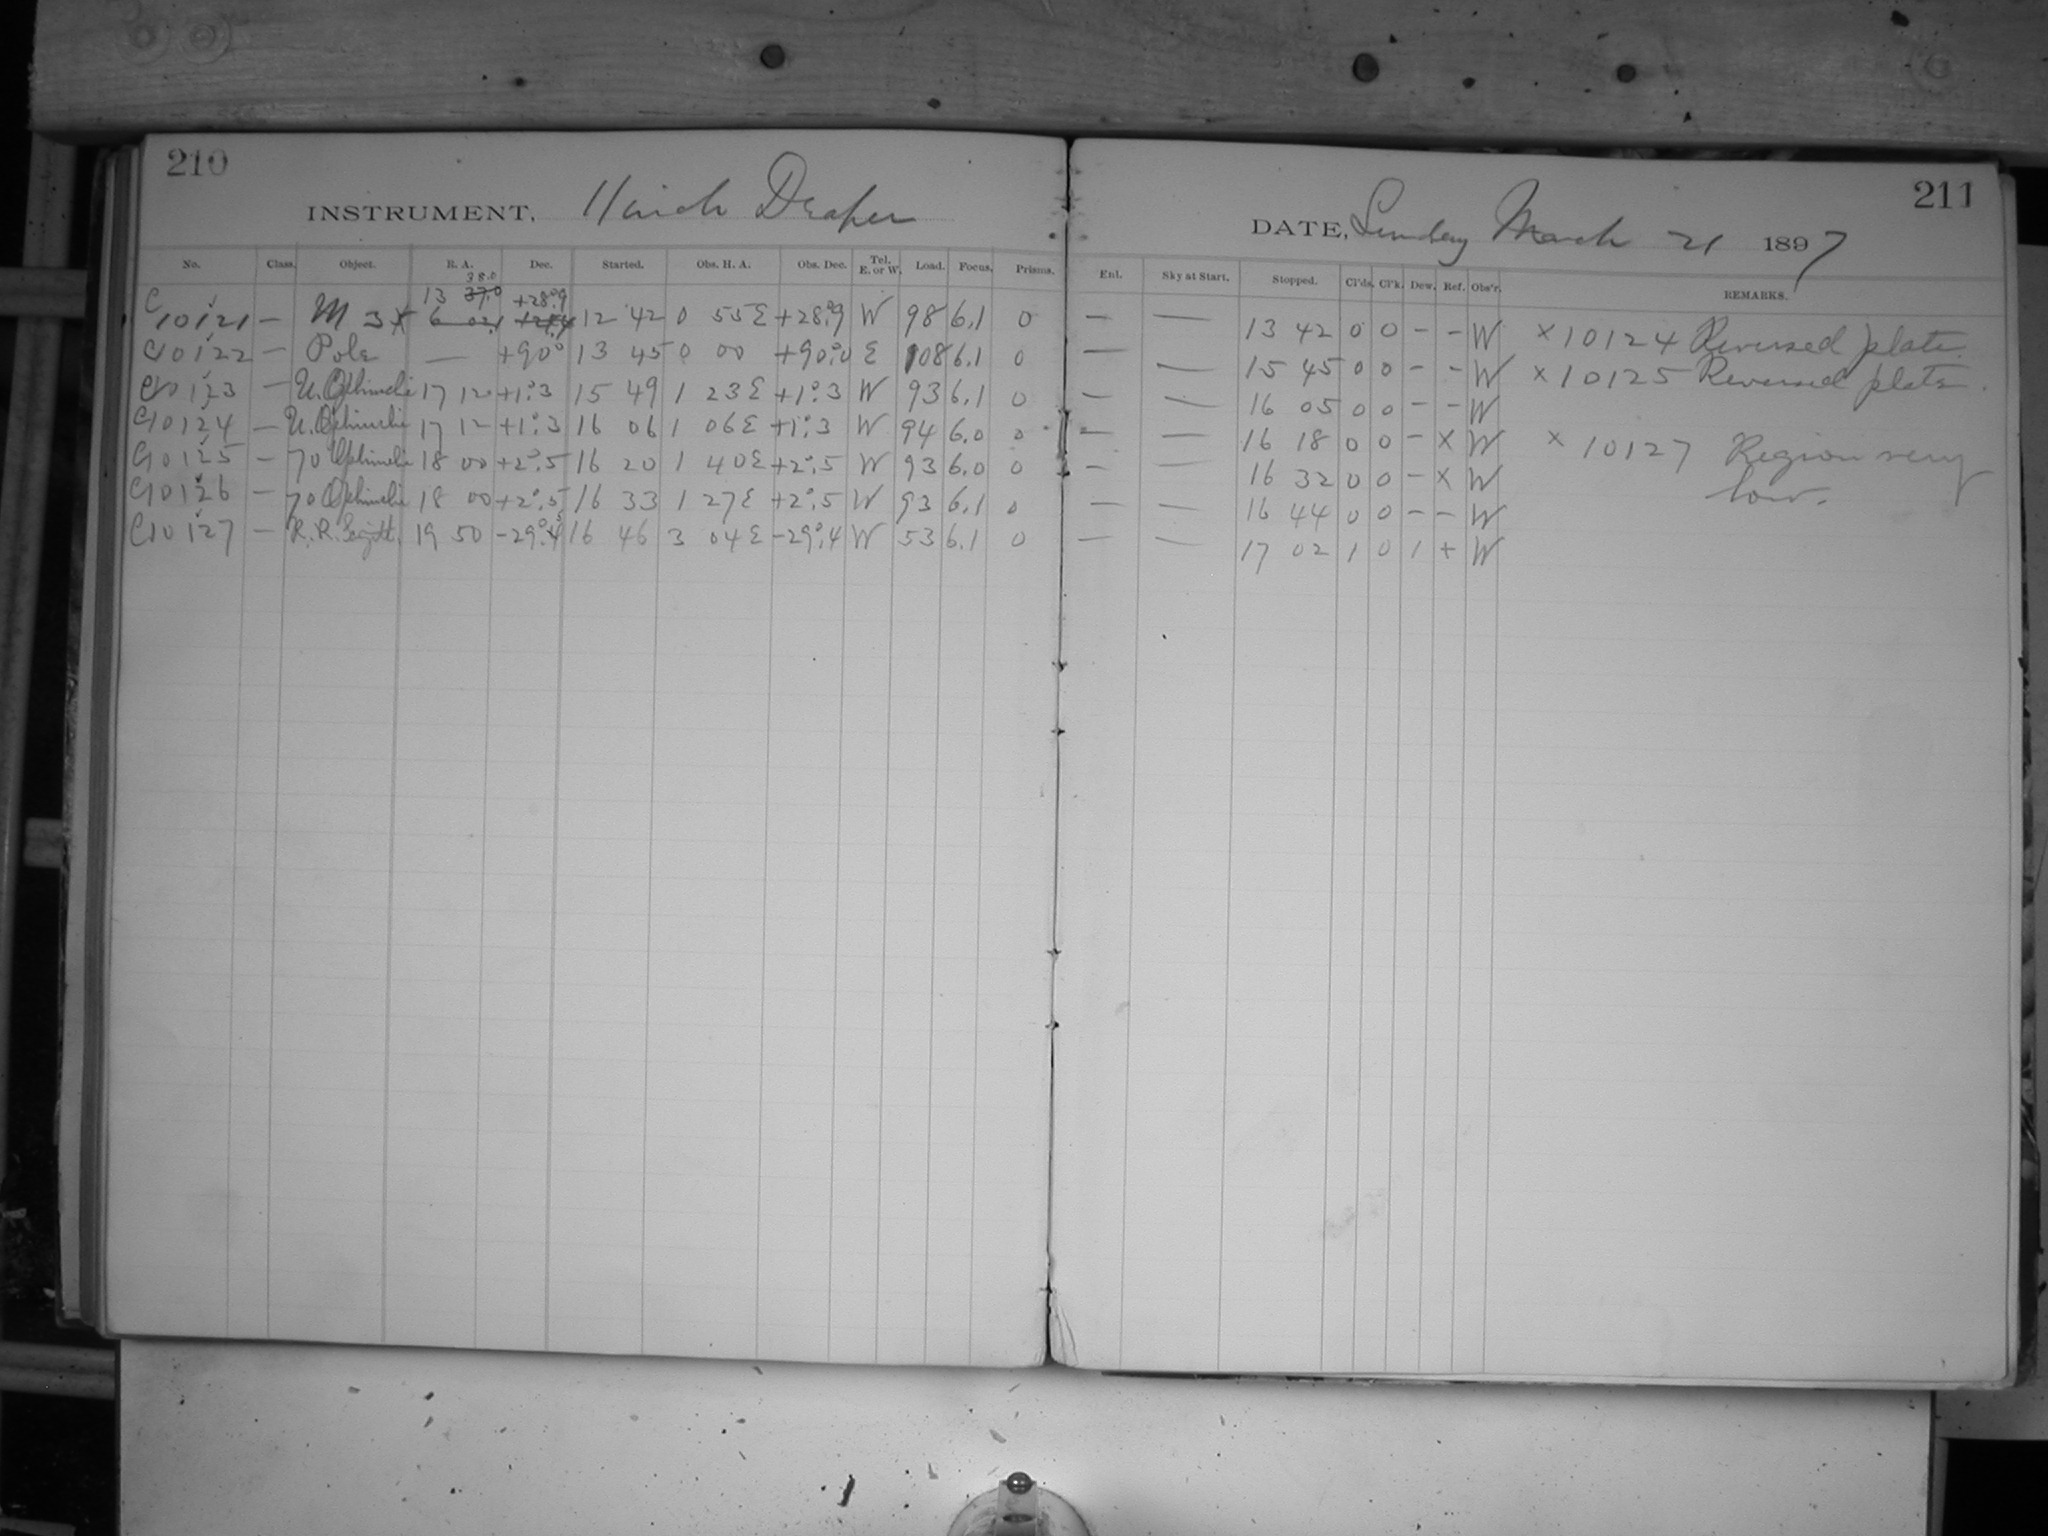 210
INSTRUMENT, 11 inch Draper
No. Class. Object. R. A. Dec. Started. Obs. H. A. Obs. Dec. Tel. E. or W. Load. Focus. Prisms.
38.0
13 37.0 +28°.9
C10121 — M 3 6 02.1 +24.4 12 42 0 55 E +28°.9 W 98 6.1 0
C10122 — Pole — +90° 13 45 0 00 +90°.0 E 108 6.1 0
C10123 — U. Ophiuchi 17 12 +1°.3 15 49 1 23 E +1°.3 W 93 6.1 0
C10124 — U. Ophiuchi 17 12 +1°.3 16 06 1 06 E +1°.3 W 94 6.0 0
C10125 — 70 Ophiuchi 18 00 +2°.5 16 20 1 40 E +2°.5 W 93 6.0 0
C10126 — 70 Ophiuchi 18 00 +2°.5 16 33 1 27 E +2°.5 W 93 6.1 0
C10127 — R.R. Sagitt. 19 50 -29°.4 16 46 3 04 E -29°.4 W 53 6.1 0
211
DATE, Sunday March 21 1897
Enl. Sky at Start. Stopped. Cl'ds. Cl'k. Dew. Ref. Obs'r. REMARKS.
— — 13 42 0 0 - - W × 10124 Reversed plate.
— — 15 45 0 0 - - W × 10125 Reversed plate.
— — 16 05 0 0 - - W
— — 16 18 0 0 - × W × 10127 Region very
— — 16 32 0 0 - × W low.
— — 16 44 0 0 - - W
— — 17 02 1 0 1 + W